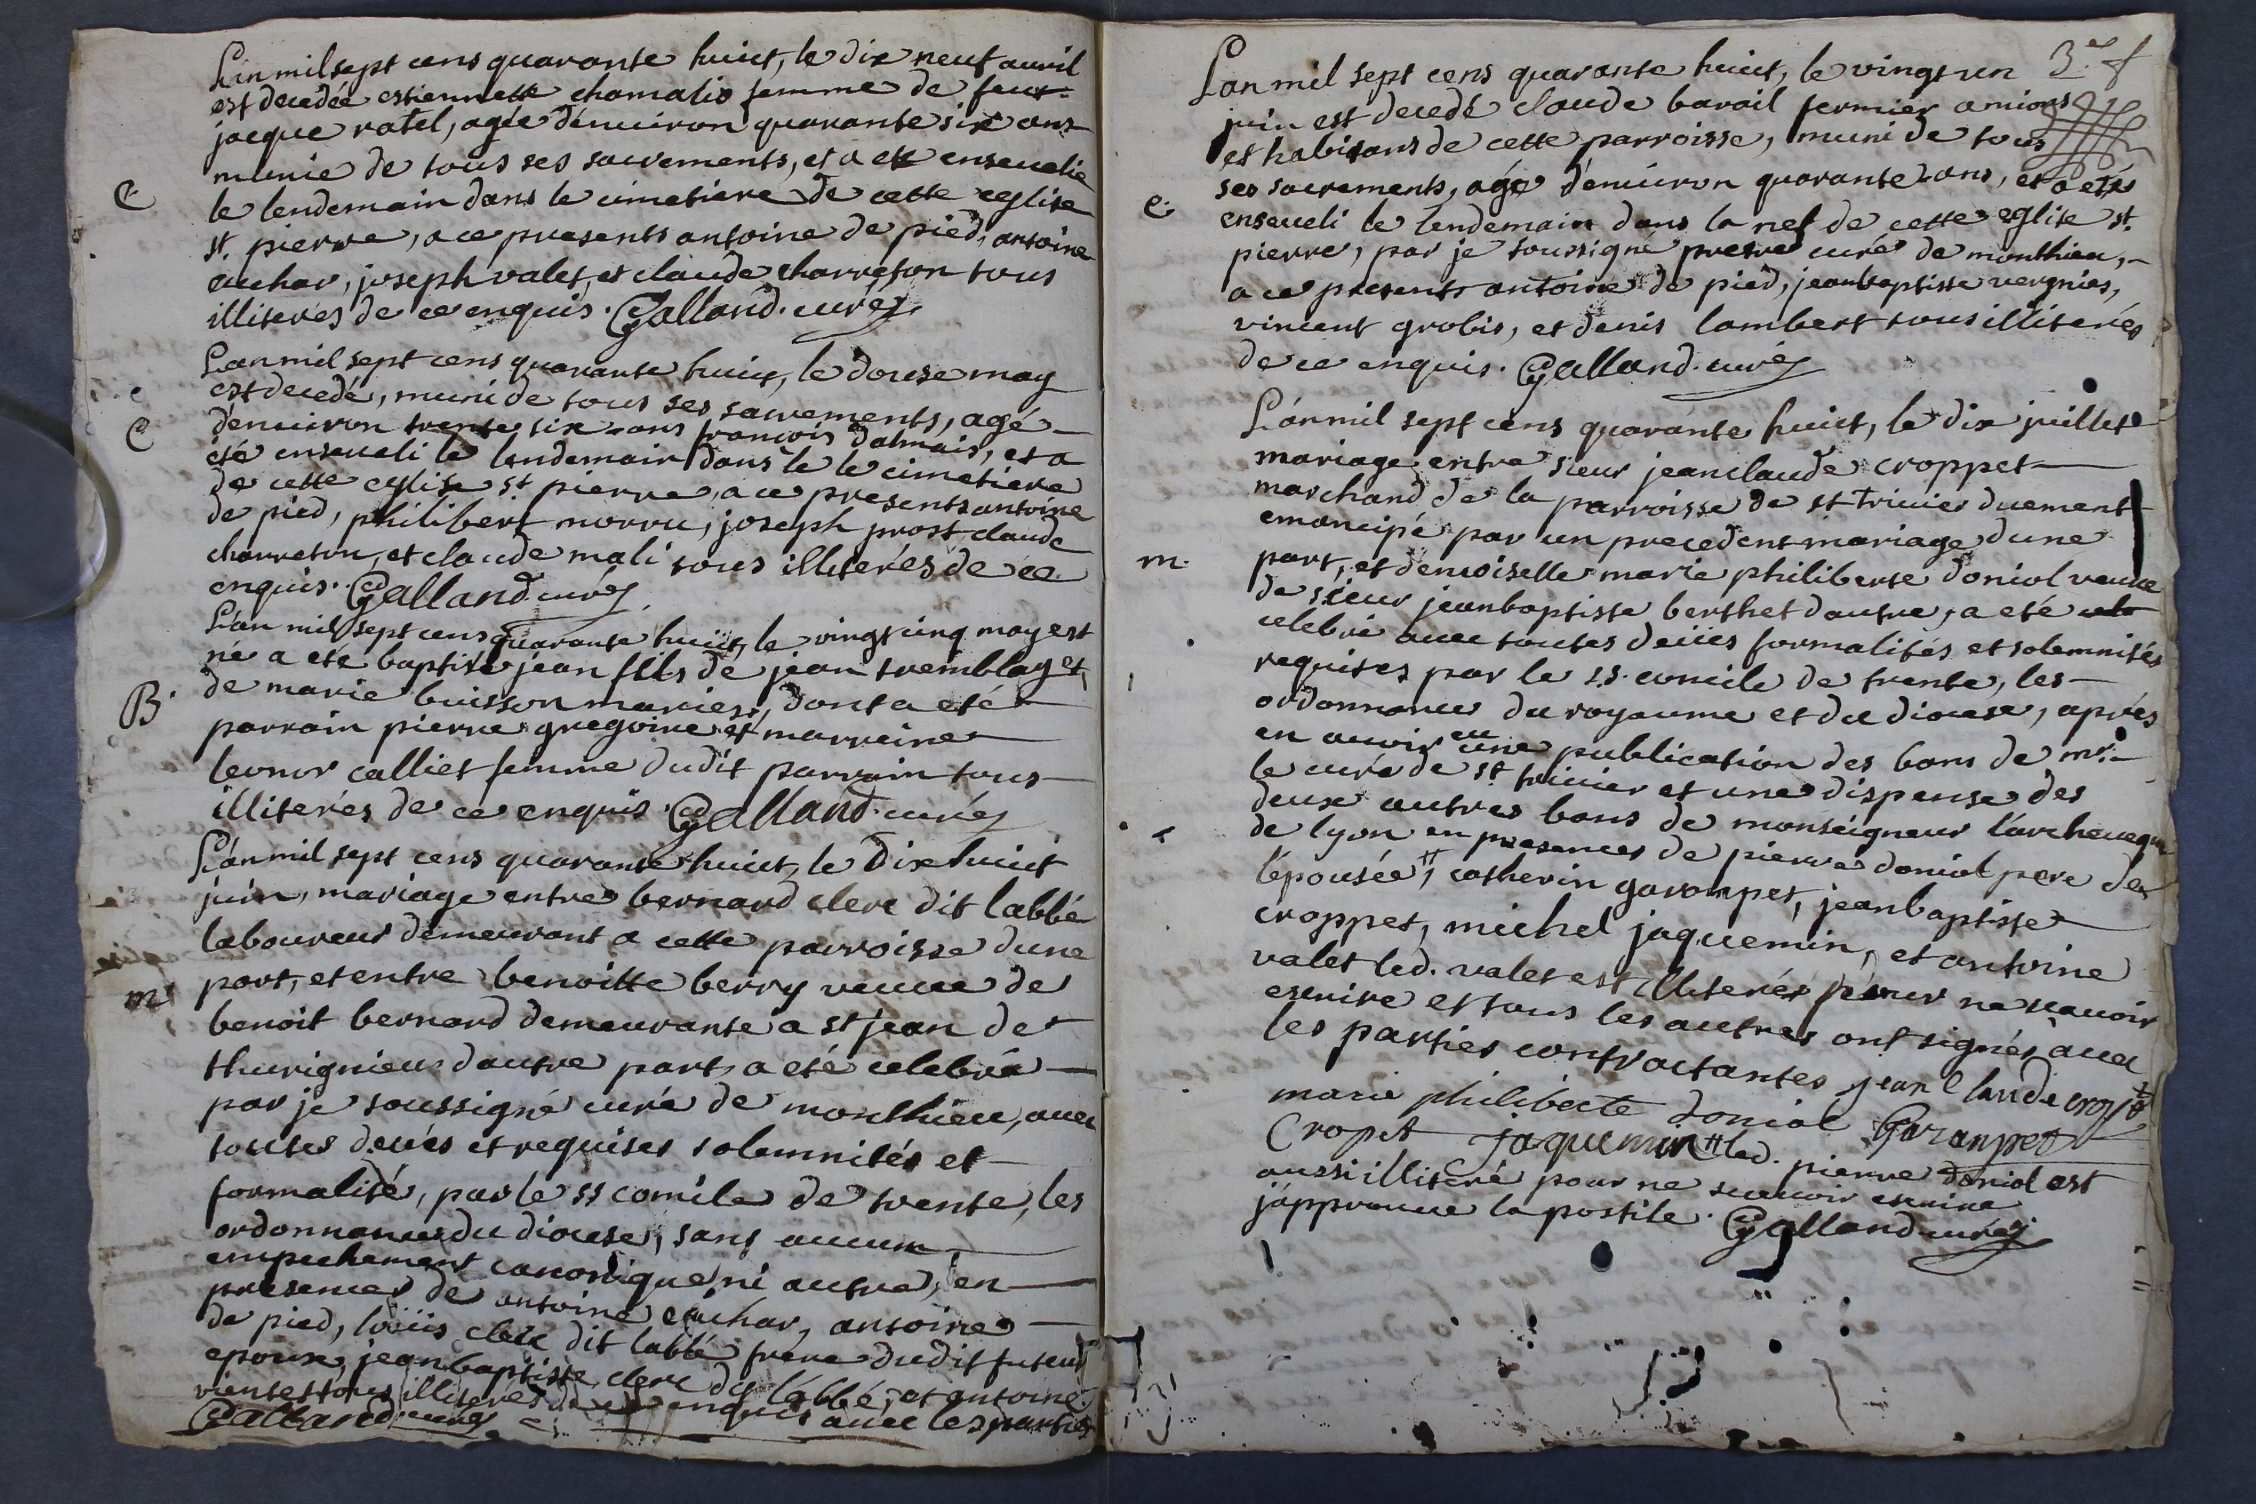 L'an mil sept cens quarante huict, le dix neuf avril
est decedée estiennette chamalio femme de feu
jacque ratel, agée d'enuiron quarante six ans
munie de tous ses sacrements, et a eté enseuelie
e.
le lendemain dans le cimetiere de cette eglise
st. pierre, a ce presents antoine de pied, antoine
cuchar, joseph valet, et claude charreton tous
illiterés de ce enquis. Galland. curé
L'an mil sept cens quarante huict, le douse may
est decedé, muni de tous ses sacrements, agé
e
d'enuiron trente six ans françois dalmais, et a
eté enseueli le lendemain dans le le cimetiere
de cette eglise st pierre, a ce presents antoine
de pied, philibert morru, joseph prost claude
charreton, et claude mali tous illiterés de ce
enquis. Galland curé
L'an mil sept cens quarante huict, le vingt cinq may est
né a eté baptisé jean fils de jean tremblay et
B.
de marie buisson mariés, dont a eté
parrain pierre gregoire et marreine
leonor calliet femme dudit parrain tous
illiterés de ce enquis. Galland. curé
L'an mil sept cens quarante huict, le dix huict
juin, mariage entre bernard clerc dit labbé
laboureur demeurant a cette parroisse d'une
m.
part, et entre benoitte berry veuue de
benoit bernard demeurante a st jean de
thurignieu d'autre part a eté celebré
par je soussigné curé de monthieu, auec
toutes deuës et requises solemnités et
formalité, par le ss concile de trente, les
ordonnances du diocese, sans aucun
empechement canonique ni autre, en
presences de antoine cuchar, antoine
de pied, loüis clerc dit labbé frere dudit futeur
epoux, jeanbaptiste clerc dit labbé, et antoine
tous illiterés de ce enquis auec les parties
Galland curé
3.e f
L'an mil sept cens quarante huict, le vingt un
juin est decedé claude barail fermier a mions
et habitans de cette parroisse, muni de tous
ses sacrements, agé d'enuiron quarante ans, et a eté
e.
enseueli le lendemain dans la nef de cette eglise st.
pierre, par je soussigné prestre curé de monthieu,
a ce presents antoine de pied, jeanbaptiste vergnias,
vincent grobis, et denis lambert tous illiterés
de ce enquis. Galland. curé
L'an mil sept cens quarante huict, le dix juillet
mariage entre sieur jeanclaude croppet
marchand de la parroisse de st triuier duement
emancipé par un precedent mariage d'une
m.
part, et demoiselle marie philiberte doniol veuue
de sieur jeanbaptiste berthet d'autre, a eté
celebré auec toutes deües formalités et solemnités
requises par le ss. concile de trente, les
ordonnances du royaume et du diocese, aprés
en auoir eu une publication des bans de mr.
le curé de st triuier et une dispense des
deux autres bans de monseigneur l'archeueque
de lyon en presences de pierre doniol pere de
l'épousée #, catherin garampet, jeanbaptiste
croppet, michel jaquemin, et antoine
valet led. valet est illiteré pour ne scauoir
escrire et tous les autres ont signés auec
les parties contractantes jean Claude cropet
marie philiberte doniol Garanpet
Cropet jaquemin # led. pierre doniol est
aussi illiteré pour ne scauoir escrire
j'approuue la postile. Galland curé